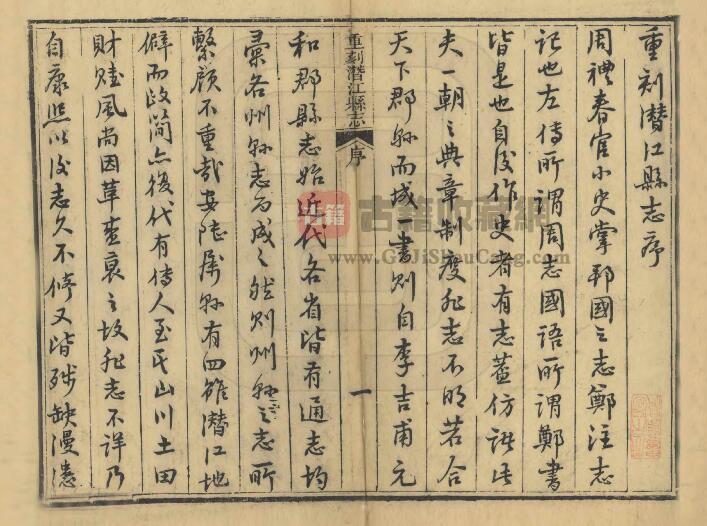 重刻潛江縣志序
周禮春官小史掌邦國之志鄭注志
記也左傳所謂周志國語所謂鄭書
皆是也自後作史者有志蓋仿諸此
夫一朝之典章制度非志不明若合
天下郡縣而成一書則自李吉甫元
重刻潛江縣志 序 一
和郡縣志始近代各省皆有通志均
彙各州縣志而成之然則州縣之志所
繫顧不重哉安陸屬縣有四雖潛江地
僻而政簡亦後代有傳人至民山川土田
財賦風尚因革盛衰之故非志不詳乃
自康熙以後志久不修又皆殘缺漫漶
古籍
古籍收藏網
www.GuJiShuCang.com